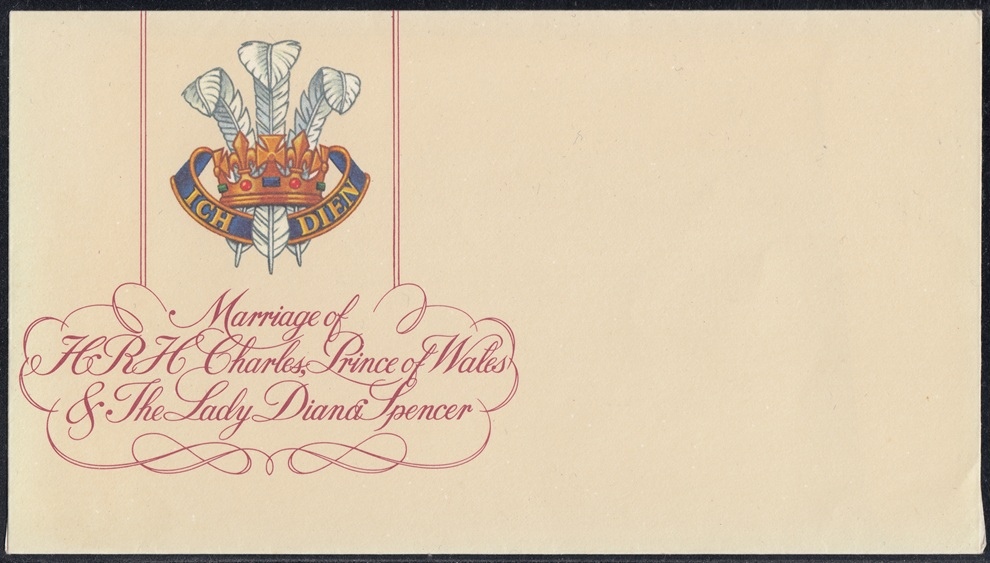 ICH DIEN
Marriage of
HRH Charles, Prince of Wales
& The Lady Diana Spencer